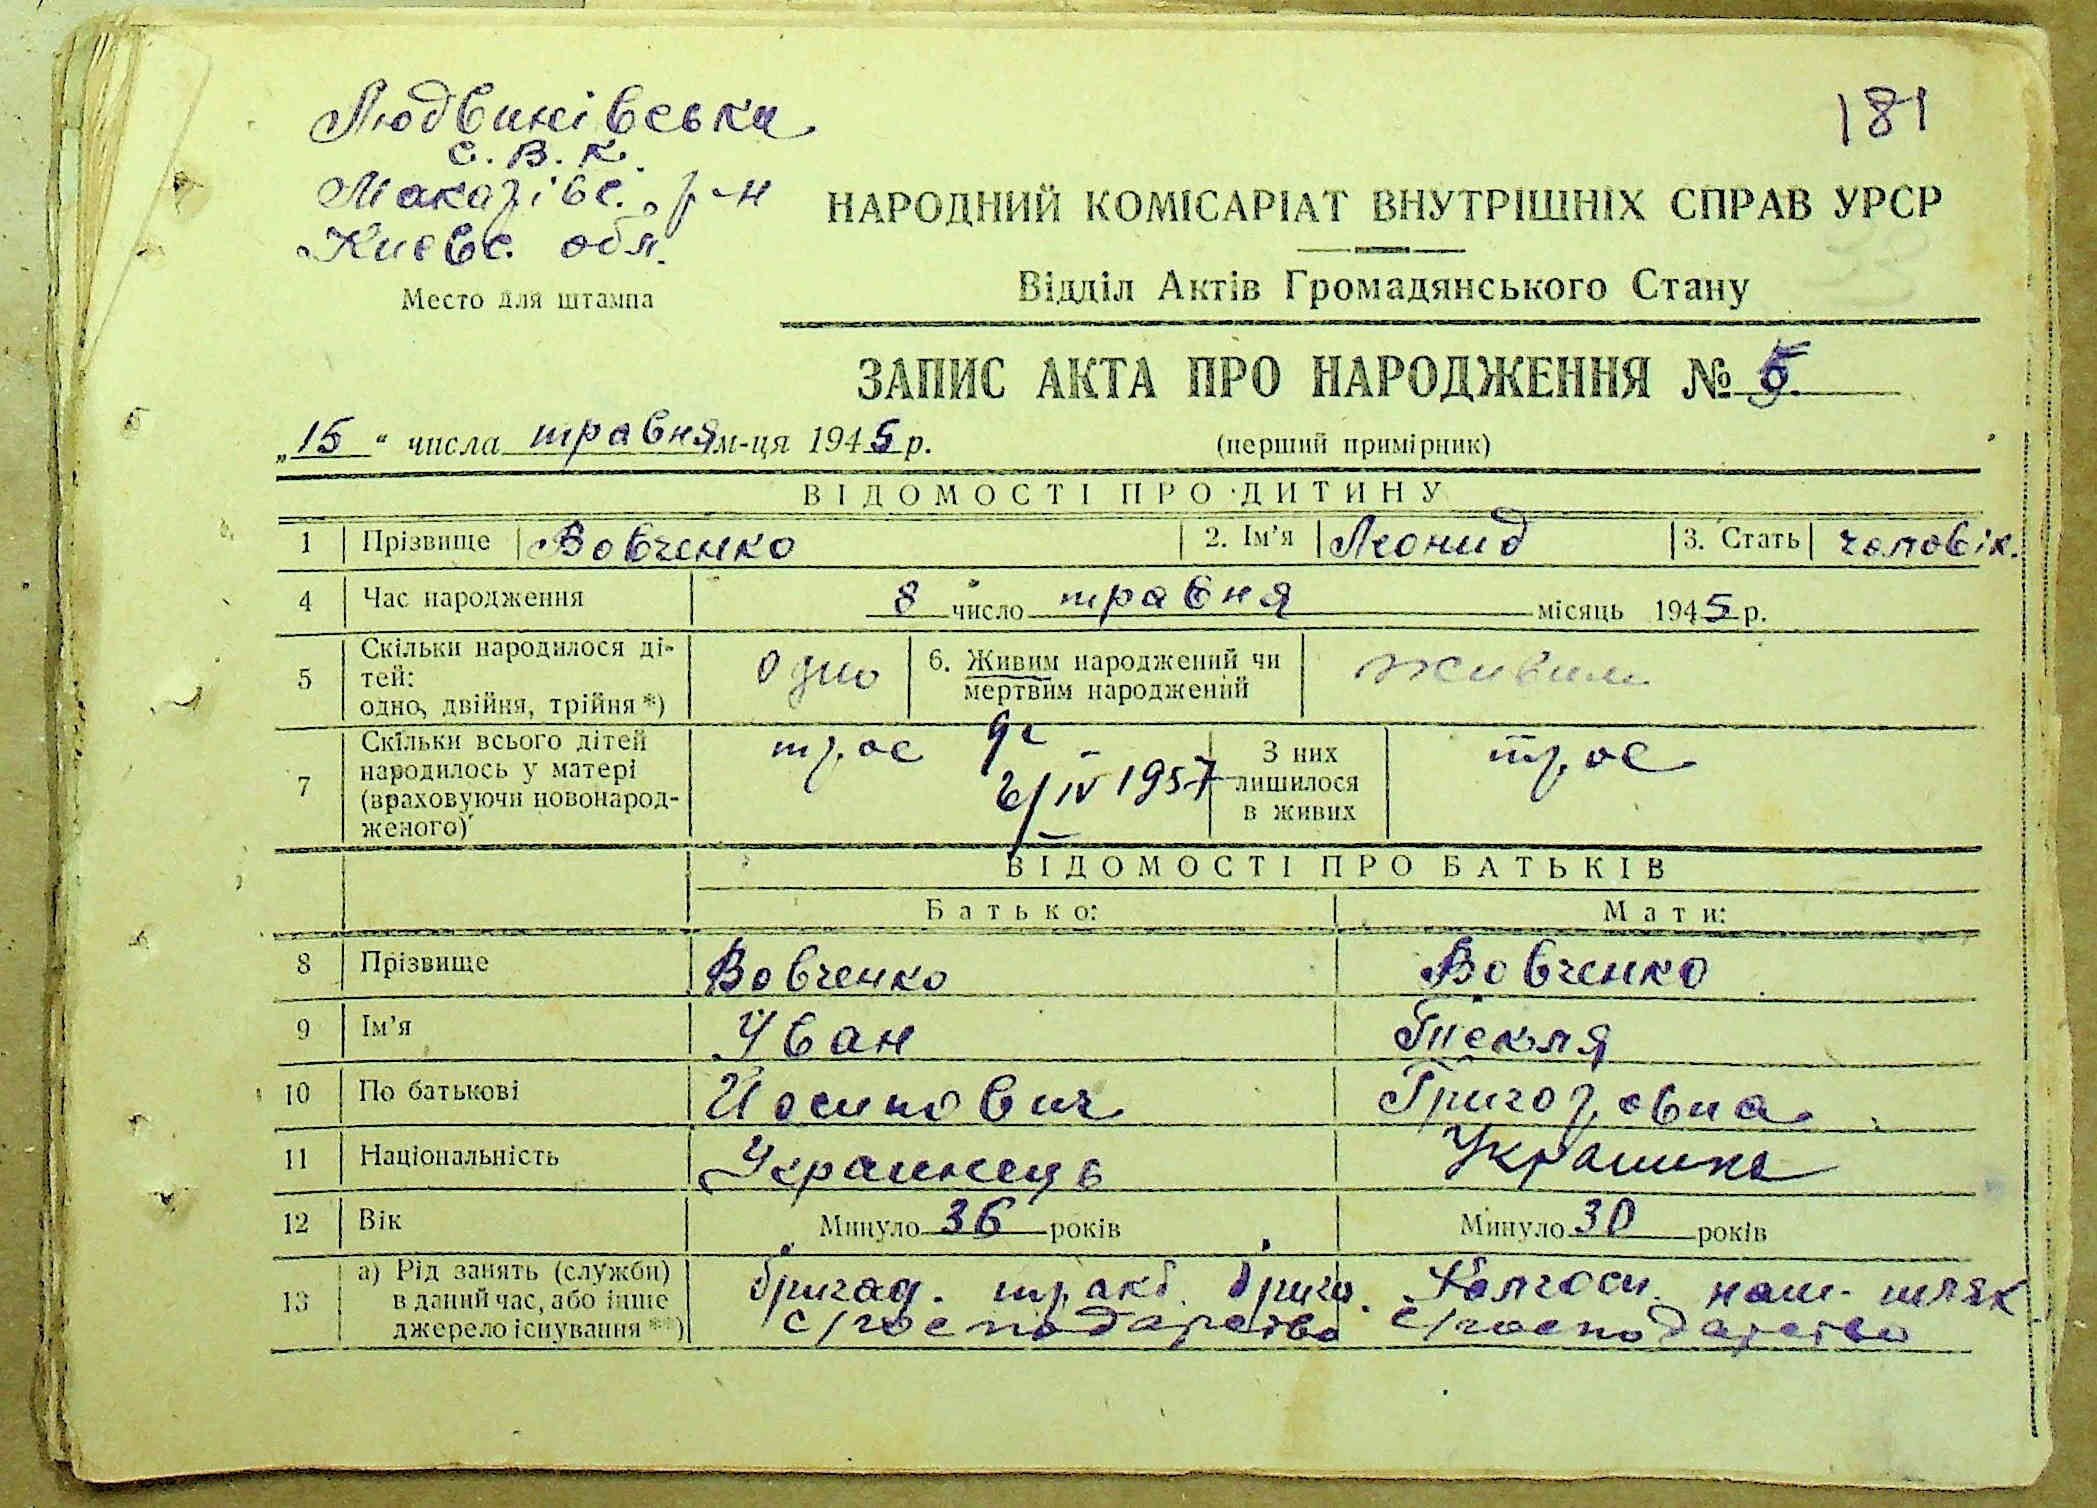 181
Людвинівська
с. в. к.
Макарівс. р-н
Києвс. обл.
Место для штампа
НАРОДНИЙ КОМІСАРІАТ ВНУТРІШНІХ СПРАВ УРСР
Відділ Актів Громадянського Стану
ЗАПИС АКТА ПРО НАРОДЖЕННЯ № 5.
„15“ числа травня м-ця 1945 р. (перший примірник)
ВІДОМОСТІ ПРО ДИТИНУ
1 Прізвище Вовченко 2. Ім'я Леонид 3. Стать чоловік.
4 Час народження 8 число травня місяць 1945 р.
5 Скільки народилося ді-
тей:
одно, двійня, трійня *) одно 6. Живим народжений чи
мертвим народжений живим
7 Скільки всього дітей
народилось у матері
(враховуючи новонарод-
женого) троє
6/IV 1957
З них
лишилося
в живих троє
ВІДОМОСТІ ПРО БАТЬКІВ
Батько: Мати:
8 Прізвище Вовченко Вовченко
9 Ім'я Иван Текля
10 По батькові Йосипович Григоровна
11 Національність Украинець Украинка
12 Вік Минуло 36 років Минуло 30 років
13 а) Рід занять (служби)
в даний час, або інше
джерело існування **) бригад. тракт. бриг. Колгосп. наш. шлях
с/господарство с/господарство